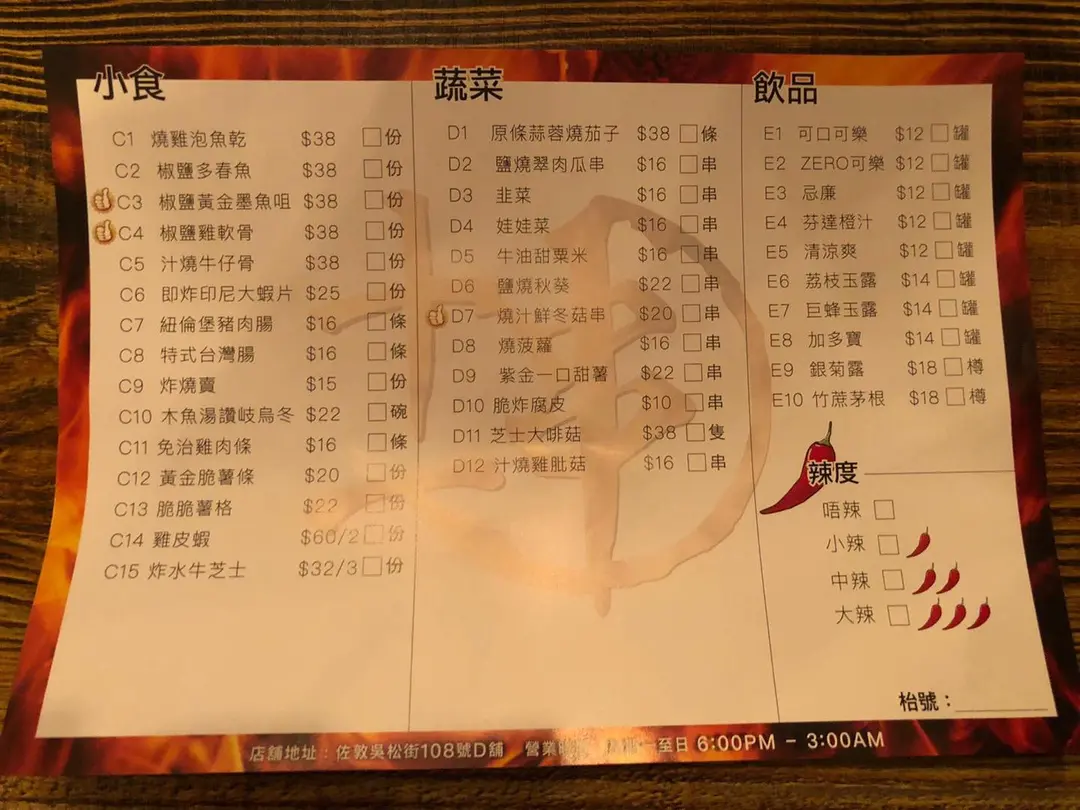 小食
C1 燒雞泡魚乾 $38 份
C2 椒鹽多春魚 $38 份
C3 椒鹽黃金墨魚咀 $38 份
C4 椒鹽雞軟骨 $38 份
C5 汁燒牛仔骨 $38 份
C6 即炸印尼大蝦片 $25 份
C7 紐倫堡豬肉腸 $16 條
C8 特式台灣腸 $16 條
C9 炸燒賣 $15 份
C10 木魚湯讚岐烏冬 $22 碗
C11 免治雞肉條 $16 條
C12 黃金脆薯條 $20 份
C13 脆脆薯格 $22 份
C14 雞皮蝦 $60/2 份
C15 炸水牛芝士 $32/3 份
蔬菜
D1 原條蒜蓉燒茄子 $38 條
D2 鹽燒翠肉瓜串 $16 串
D3 韭菜 $16 串
D4 娃娃菜 $16 串
D5 牛油甜粟米 $16 串
D6 鹽燒秋葵 $22 串
D7 燒汁鮮冬菇串 $20 串
D8 燒菠蘿 $16 串
D9 紫金一口甜薯 $22 串
D10 脆炸腐皮 $10 串
D11 芝士大啡菇 $38 隻
D12 汁燒雞肶菇 $16 串
飲品
E1 可口可樂 $12 罐
E2 ZERO可樂 $12 罐
E3 忌廉 $12 罐
E4 芬達橙汁 $12 罐
E5 清涼爽 $12 罐
E6 荔枝玉露 $14 罐
E7 巨蜂玉露 $14 罐
E8 加多寶 $14 罐
E9 銀菊露 $18 樽
E10 竹蔗茅根 $18 樽
辣度
唔辣
小辣
中辣
大辣
枱號：
店舖地址：佐敦吳松街108號D舖 營業 一至日 6:00PM - 3:00AM